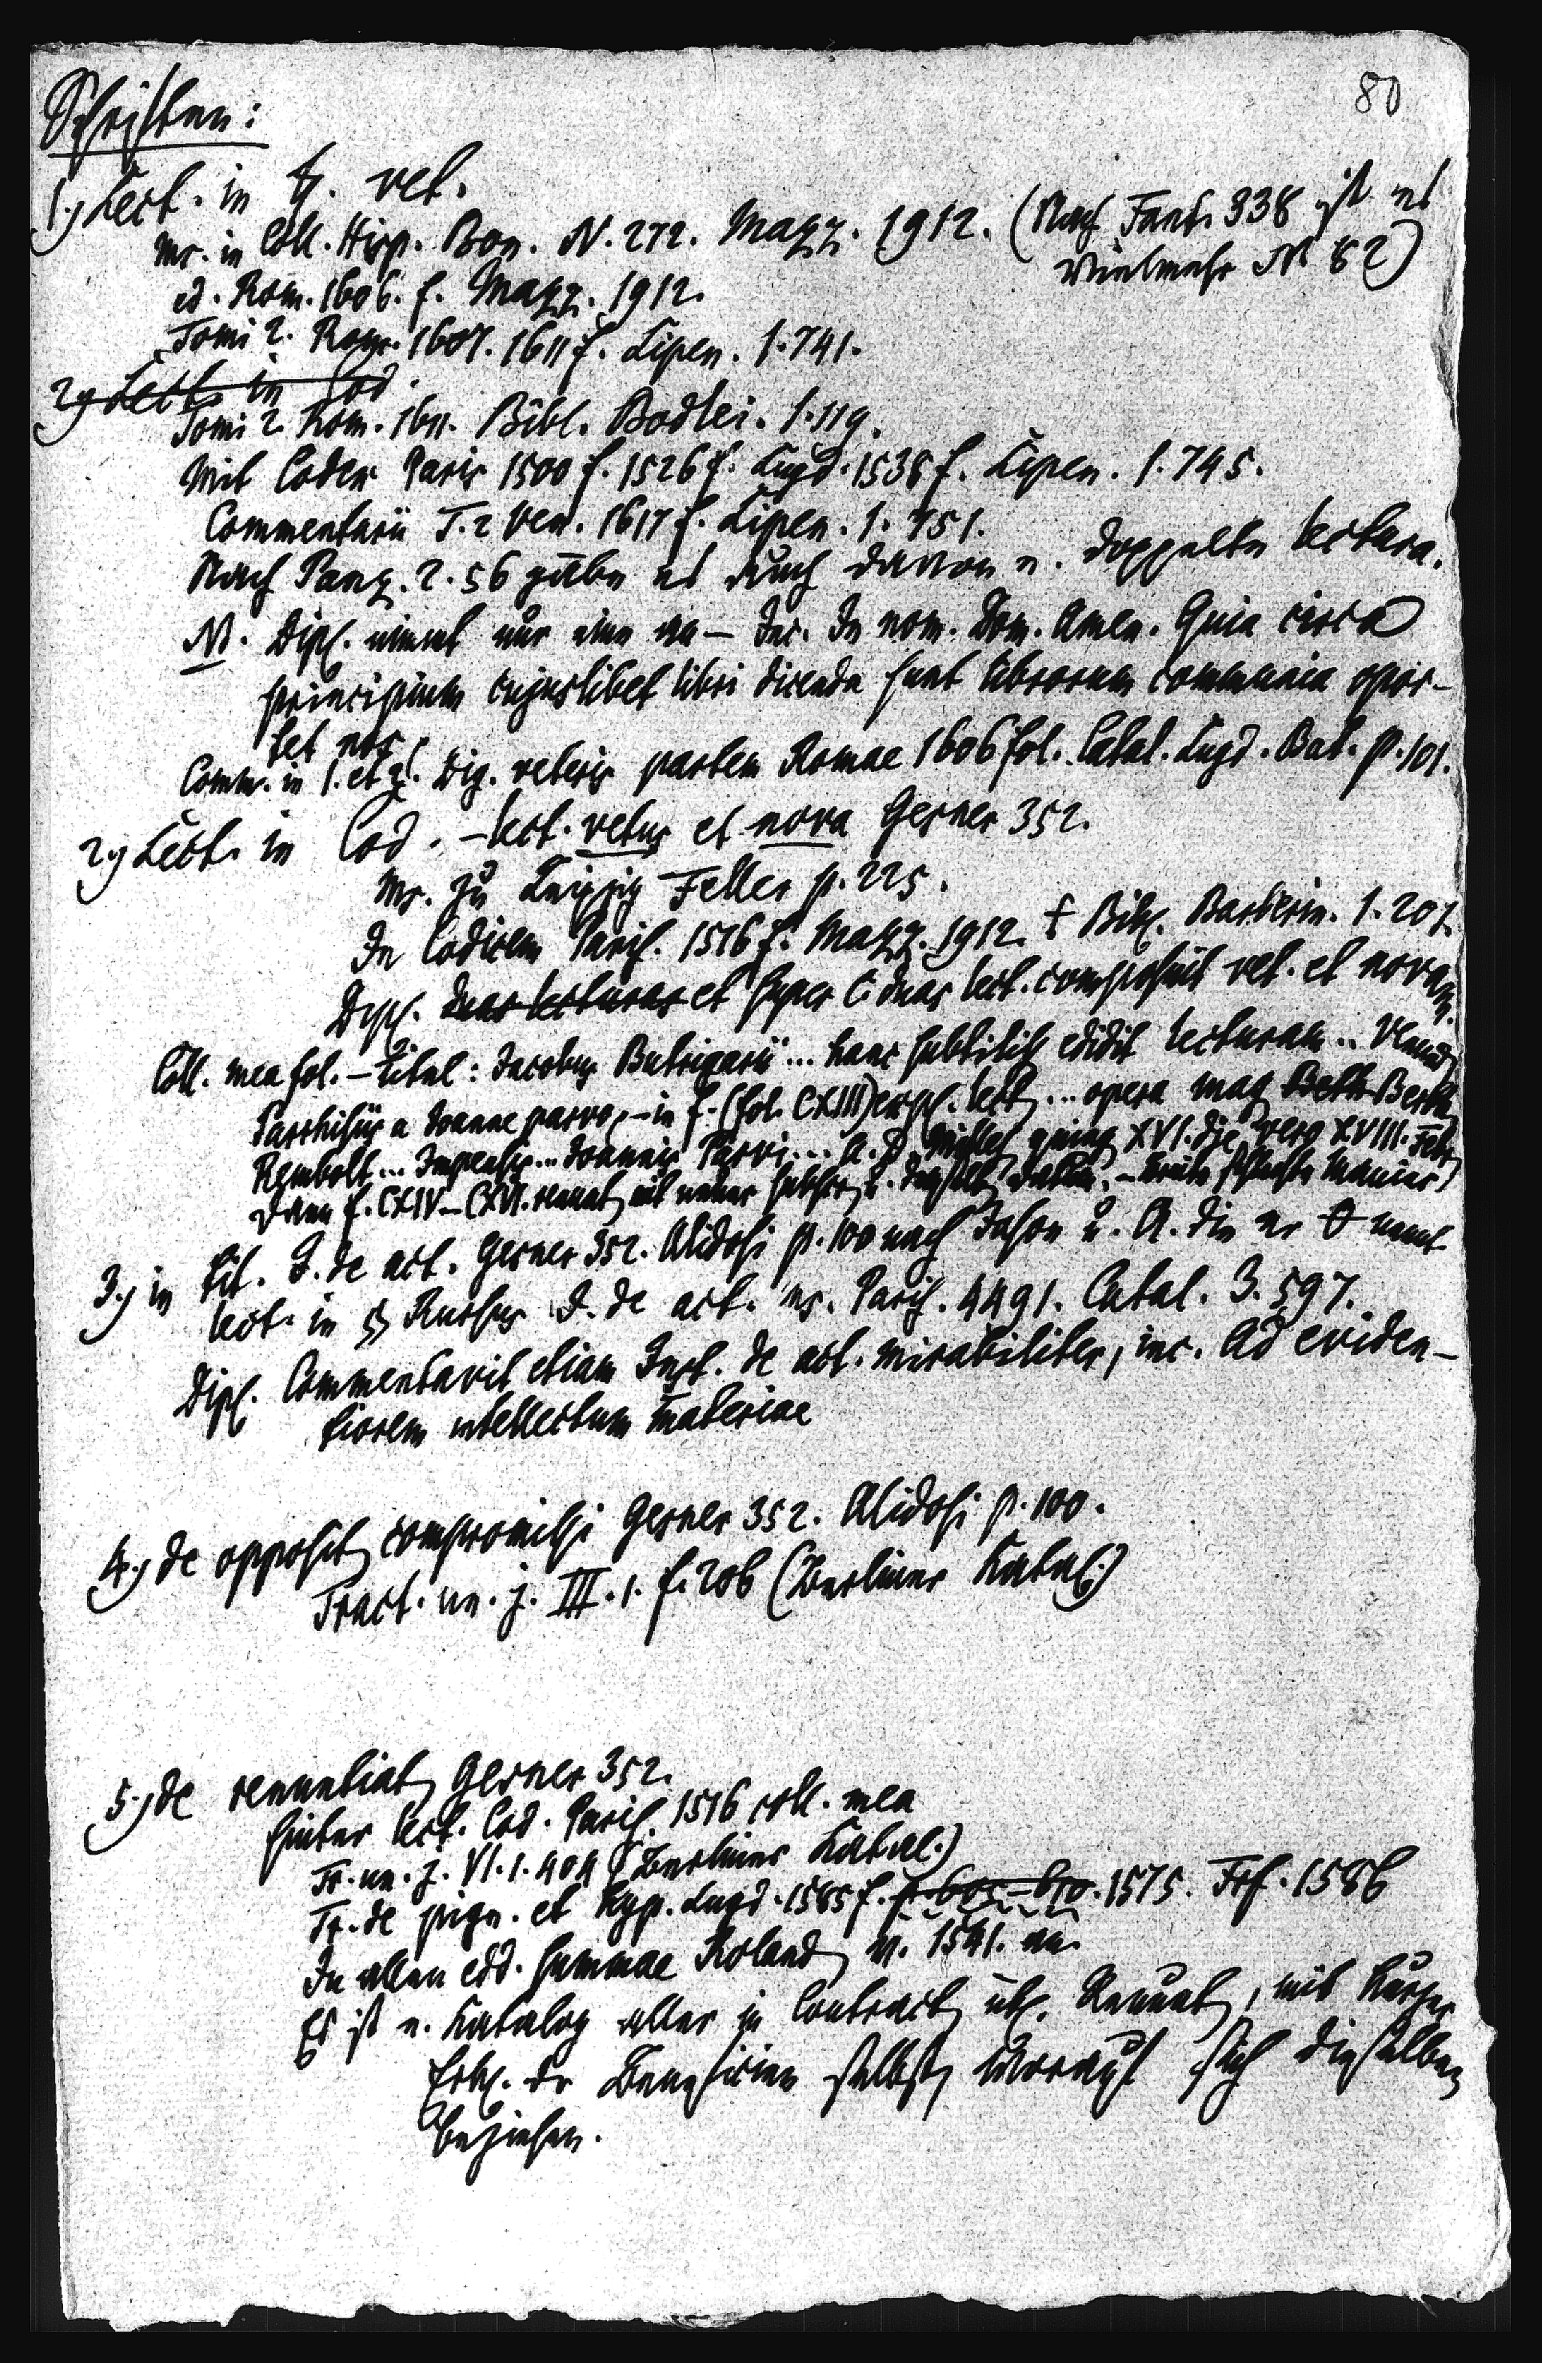 80
Schriften:
1.) Lect. in ff. vet.
Ms. in Coll. Hisp. Bon. N. 272. Mazz. 1912. (Nach Fant. 338 ist es
vielmehr N. 82)
ed. Rom. 1606. f. Mazz. 1912.
Tomi 2. Rom. 1607. 1611 f. Lipen. 1.741.
2.) Lect. in Cod.
Tomi 2 Rom. 1611. Bibl. Bodlei. 1.119.
Mit Codex Paris 1500 f. 1526 f. Lugd. 1538 f. Lipen. 1.745.
Commentarii T. 2 Ven. 1617 f. Lipen. 1.751.
Nach Panz. 2.56 gäbe es auch davon e. doppelte Lectura.
N. Dipl. nennt nur eine – Inc. In nom. Dom. Amen. Quia circa
principium cujuslibet libri dicenda sunt librorum communia opor-
tet nos.
Comm. in 1. et 2. Dig. veteris partem Romae 1606 fol. Catal. Lugd. Bat. p. 101.
2.) Lect. in Cod. – lect. vetus et nova Gesner 352.
Ms. zu Leipzig Feller p. 225.
In Codicem Paris. 1516 f. Mazz. 1912. + Bibl. Barberin. 1.207.
Dipl. duas lecturas et super C. duas lect. composuit vet. et novam.
Coll. mea fol. – Titul: Jacobus Butrigarii ... hanc subtilit. edidit lecturam ..
Parrhisiis a Joanne parvo, – in f. (fol. CXIII) expl. lect. ... opera mag. Berth.
Rembolt ... Impensis ... Joannis Parvi ... A. D. Milles. quing. XVI. die vero XVIII. Febr.
dann f. CXIV – CXVI. renunt. mit neuer subscr. u. demselb. Datum.
3.) in tit. J. de act. Gesner 352. Alidosi p. 100 nach Jason u. A. die er nennt
lect. in § Rursus J. de act. ms. Paris. 4491. Catal. 3. 597.
Dipl. Commentavit etiam Inst. de act. mirabiliter, inc. Ad eviden-
tiorem intellectum materiae
4.) de opposit. compromissi Gesner 352. Alidosi p. 100.
Tract. un. j. III. 1. f. 206 (Berliner Katal.)
5.) de renuntiat. Gesner 352.
hinter lect. Cod. Paris. 1516 coll. mea
Tr. un. j. VI. 1. 404 (Berliner Katal.)
Tr. de pign. et hyp. Lugd. 1585 f. p. 605 – 610. 1575. Frf. 1586
In allen edd. summae Roland. v. 1541. an.
Es ist e. Katalog aller in Contract. übl. Renunt., mit kurzer
Erkl. der Beneficien selbst, worauf sich dieselben
beziehen.